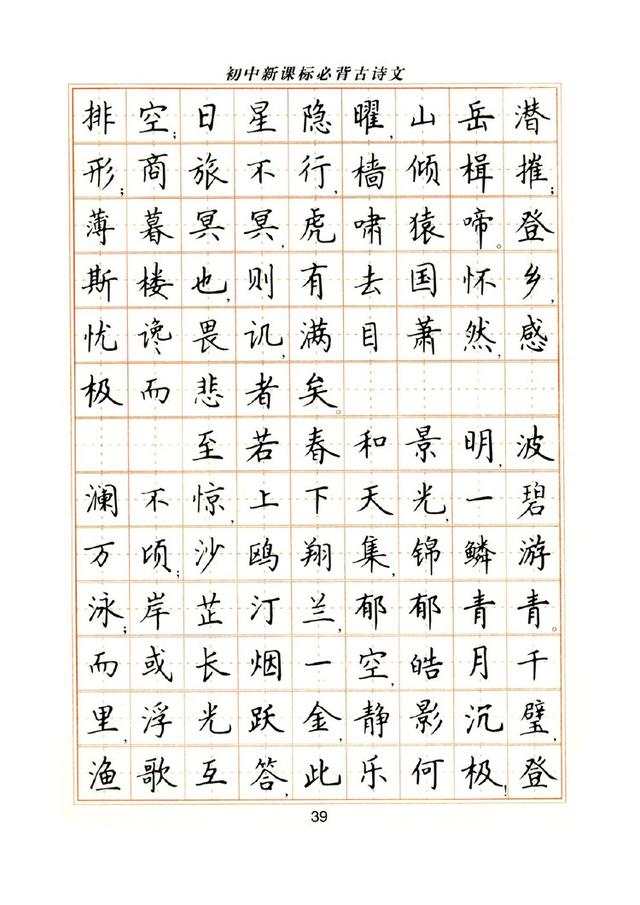 初中新课标必背古诗文
排空；日星隐曜，山岳潜
形；商旅不行，樯倾楫摧；
薄暮冥冥，虎啸猿啼。登
斯楼也，则有去国怀乡，
忧谗畏讥，满目萧然，感
极而悲者矣。
至若春和景明，波
澜不惊，上下天光，一碧
万顷；沙鸥翔集，锦鳞游
泳；岸芷汀兰，郁郁青青。
而或长烟一空，皓月千
里，浮光跃金，静影沉璧，
渔歌互答，此乐何极！登
39